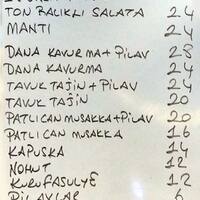 TON BALIKLI SALATA 24
MANTI 24
DANA KAVURMA+PİLAV 28
DANA KAVURMA 24
TAVUK TAJİN+PİLAV 24
TAVUK TAJİN 20
PATLICAN MUSAKKA+PİLAV 20
PATLICAN MUSAKKA 16
KAPUSKA 14
NOHUT 12
KURUFASULYE 12
PİLAVLAR 6